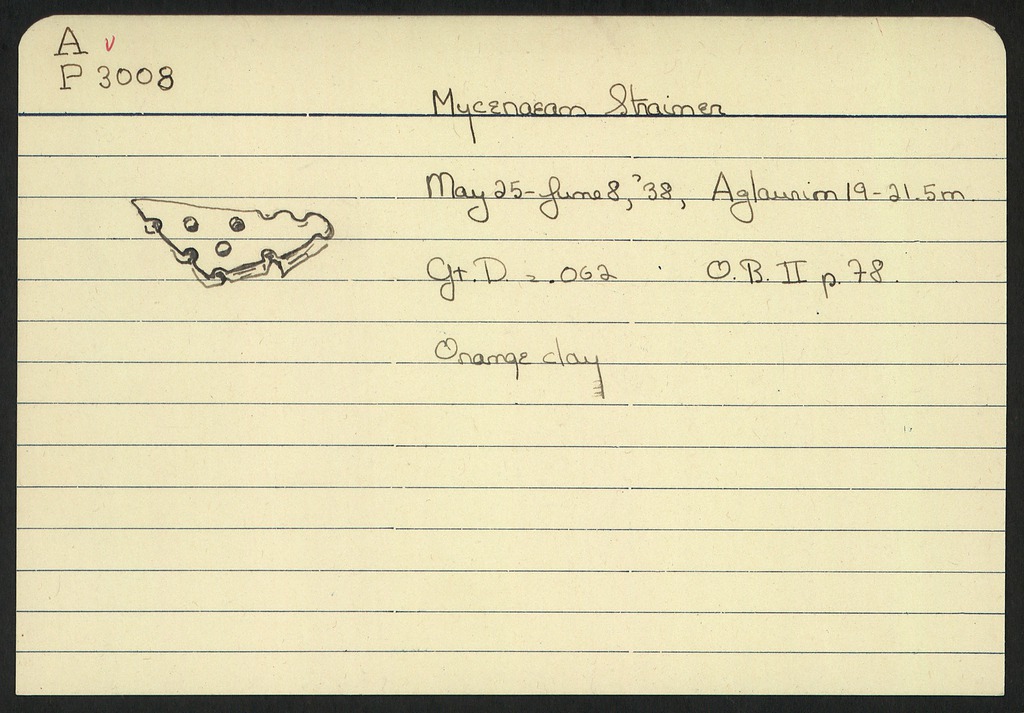 A v
P 3008
Mycenaean Strainer
May 25-June 8, '38, Aglaurion 19-21.5m.
Gt. D. = .062 O.B. II p. 78.
Orange clay